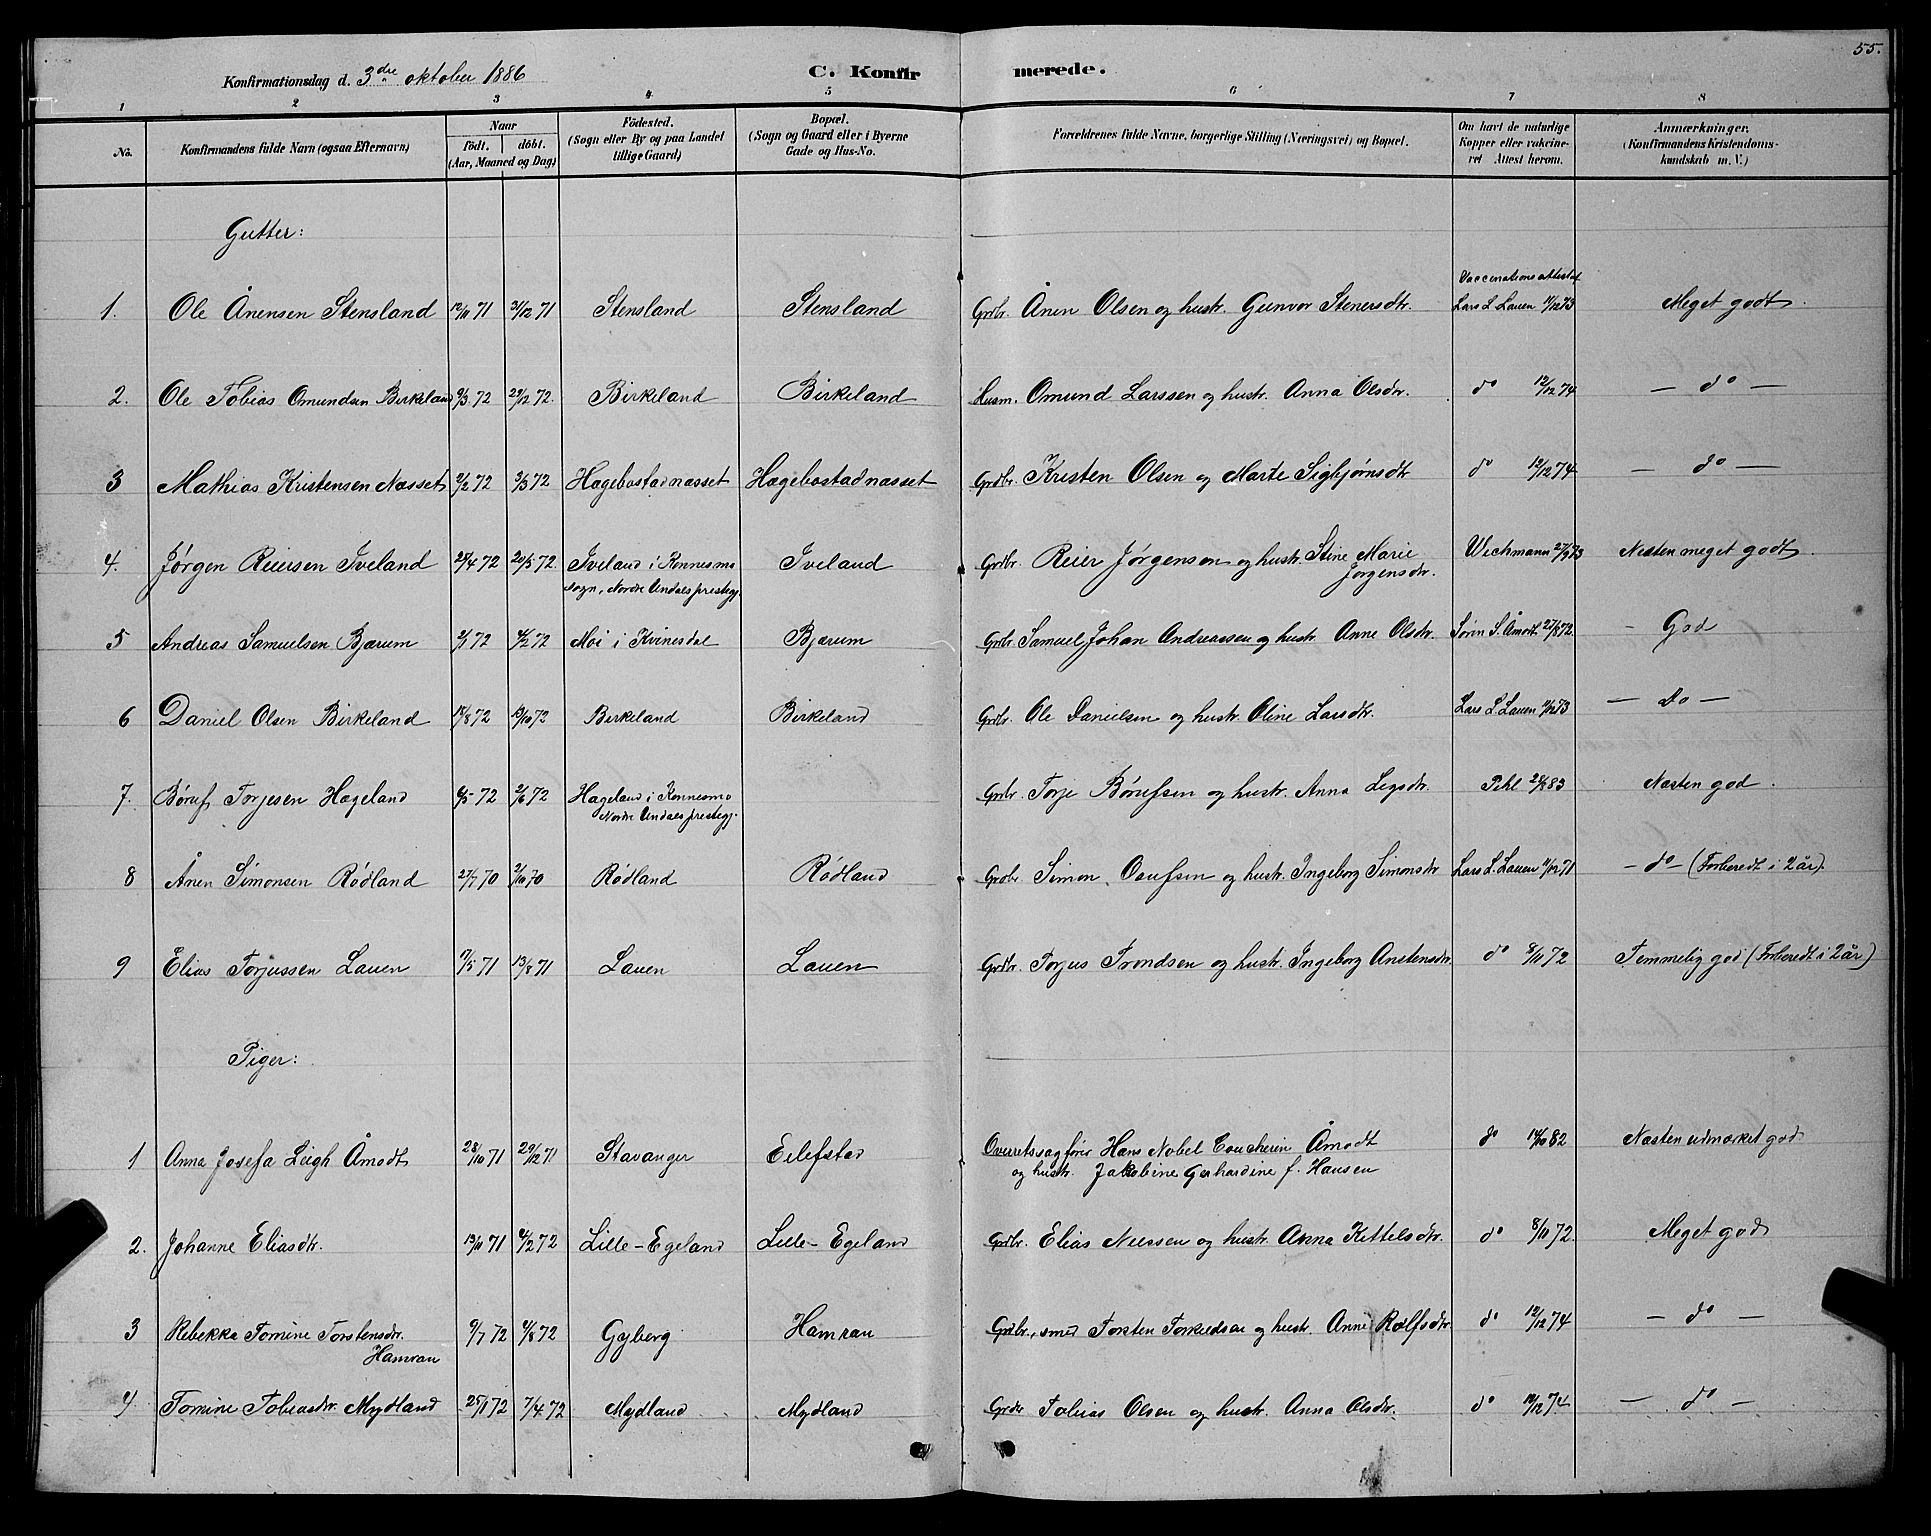 55.
Konfirmationsdag d. 3dre oktober 1886
C. Konfirmerede.
1 2 3 4 5 6 7 8
No.
Konfirmandens fulde Navn (ogsaa Efternavn)
Naar
födt. döbt.
(Aar, Maaned og Dag)
Födested.
(Sogn eller By og paa Landet
tillige Gaard)
Bopæl.
(Sogn og Gaard eller i Byerne
Gade og Hus-No.
Forældrenes fulde Navne, borgerlige Stilling (Næringsvei) og Bopæl.
Om havt de naturlige
Kopper eller vakcine-
ret Attest herom.
Anmærkninger.
(Konfirmandens Kristendoms-
kundskab m. V.)
Gutter:
Vaccinationsattest af
1. Ole Ånensen Stensland 12/11 71 31/12 71 Stensland Stensland Grdbr. Ånen Olsen og hustr. Gunvor Stenersdtr. Lars L. Lauen 11/12 73 Meget godt.
2. Ole Tobias Omundsen Birkeland 9/3 72 29/12 72. Birkeland Birkeland Husm. Omund Larssen og hustr. Anna Olsdtr. do 12/12 74 — do —
3 Mathias Kristensen Næsset 2/2 72 3/3 72 Hægebostadnæsset Hægebostadnæsset Grdbr. Kristen Olsen og Marte Sigbjørnsdtr do 12/12 74 — do —
4. Jørgen Reiersen Iveland 28/4 72 20/5 72. Iveland i Konnesmo Iveland Grdbr. Reier Jørgensen og hustr. Stine Marie Wichmann 27/9 73 Næsten meget godt.
sogn, Nordre Undals prestegj. Jørgensdtr.
5 Andreas Samuelsen Bjærum 2/1 72 4/2 72 Moi i Kvinesdal Bjærum Grdbr Samuel Johan Andreassen og hustr. Anne Olsdtr. Sørin S. Åmodt 21/8 72. — God
6 Daniel Olsen Birkeland 18/8 72 13/10 72 Birkeland Birkeland Grdbr. Ole Danielsen og hustr. Oline Larsdtr. Lars L. Lauen 11/12 73 — Do —
7. Børuf Torjesen Hægeland 6/5 72 2/6 72 Hægeland i Konnesmo Grdbr. Torje Børufsen og hustr. Anna Legsdtr. Pihl 83 Næsten god.
Nordre Undals prestegj.
8 Ånen Simonsen Rødland 27/7 70 2/10 70 Rødland Rødland Grdbr. Simon Omfsen og hustr. Ingeborg Simonsdtr Lars L. Lauen 11/12 71 — do — (Forberedt i 2 år).
9 Elias Torjussen Lauen 17/5 71 13/8 71 Lauen Lauen Grdbr. Torjus Trondsen og hustr. Ingeborg Anstensdtr. do 8/11 72 Temmelig god (Forberedt i 2 år)
Piger:
1 Anna Josefa Leigh Åmodt 28/10 71 29/12 71 Stavanger Eilefstad Overretssagfører Hans Nobel Coucheron Åmodt do 14/10 82 Næsten udmærket god
og hustr. Jakobine Gerhardine f. Hansen
2. Johanne Eliasdtr. 13/11 71 4/2 72 Lille-Egeland Lille-Egeland Grdbr. Elias Nielsen og hustr. Anna Kittelsdtr. do 8/11 72. Meget god
3 Rebekka Tomine Torstensdr. 9/7 72 4/8 72 Gyberg Hamran Grdbr., smed Torsten Torkildsen og hustr. Anne Rolfsdtr do 12/12 74 — do —
Hamran
4 Tomine Tobiasdtr. Mydland 25/1 72 7/4 72 Mydland Mydland Grdbr Tobias Olsen og hustr. Anna Olsdtr. do 12/12 74 — do —